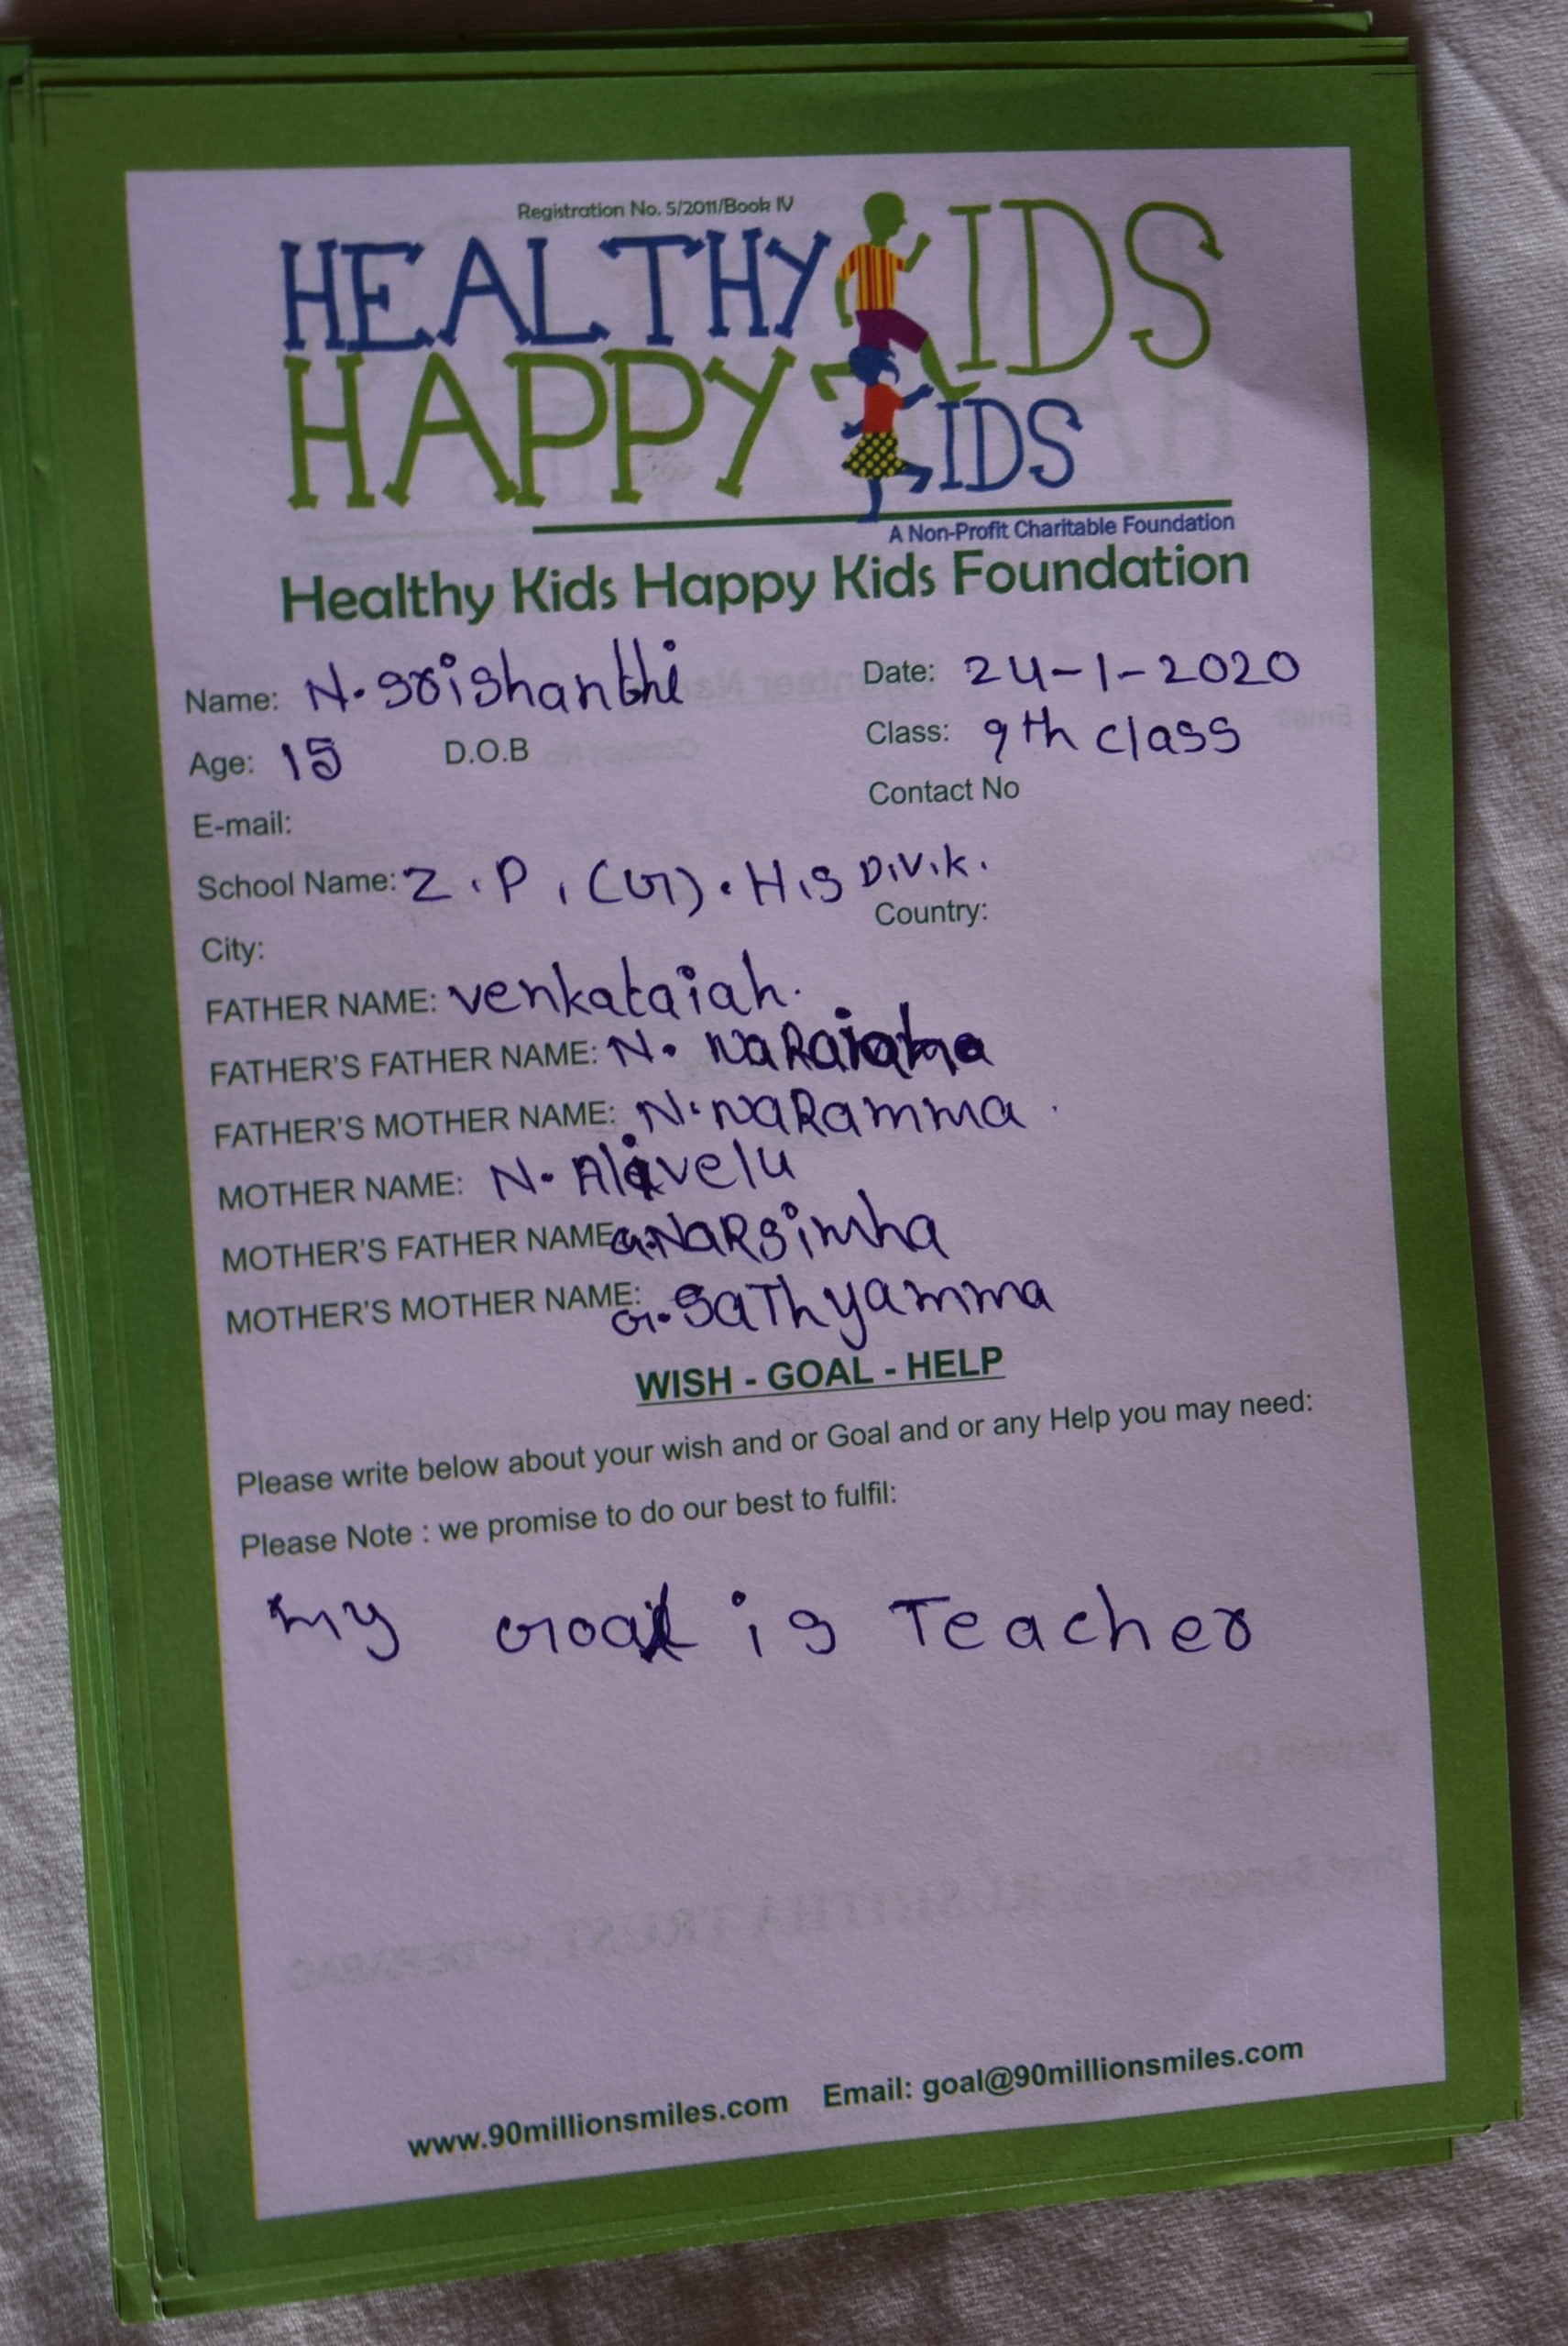 Registration No. 5/2011/Book IV
HEALTHY KIDS
HAPPY KIDS
A Non-Profit Charitable Foundation
Healthy Kids Happy Kids Foundation
Name: N. Srishanthi Date: 24-1-2020
Age: 15 D.O.B Class: 9th class
E-mail: Contact No
School Name: Z.P.(G).H.S D.V.K.
City: Country:
FATHER NAME: Venkataiah.
FATHER'S FATHER NAME: N.
FATHER'S MOTHER NAME: N. NaRamma.
MOTHER NAME: N. Alivelu
MOTHER'S FATHER NAME: G. NaRsimha
MOTHER'S MOTHER NAME: G. SaThyamma
WISH - GOAL - HELP
Please write below about your wish and or Goal and or any Help you may need:
Please Note : we promise to do our best to fulfil:
my Goal is Teacher
www.90millionsmiles.com Email: goal@90millionsmiles.com